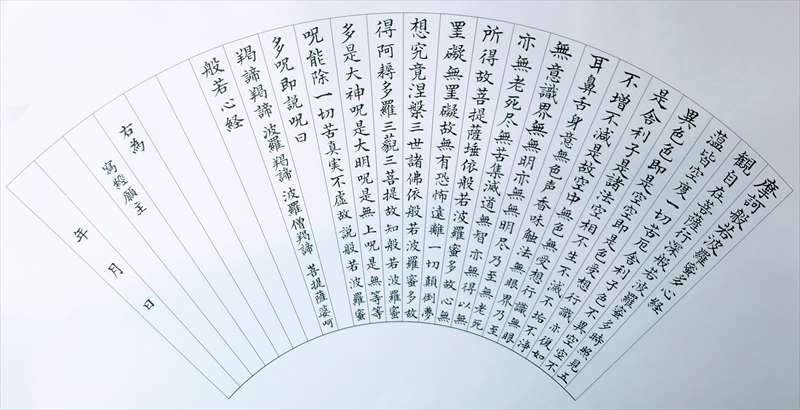 摩訶般若波羅蜜多心経
観自在菩薩行深般若波羅蜜多時照見五
薀皆空度一切苦厄舎利子色不異空空不
異色色即是空空即是色受想行識亦復如
是舎利子是諸法空相不生不滅不垢不浄
不増不減是故空中無色無受想行識無眼
耳鼻舌身意無色声香味触法無眼界乃至
無意識界無無明亦無無明尽乃至無老死
亦無老死尽無苦集滅道無智亦無得以無
所得故菩提薩埵依般若波羅蜜多故心無
罣礙無罣礙故無有恐怖遠離一切顛倒夢
想究竟涅槃三世諸佛依般若波羅蜜多故
得阿耨多羅三藐三菩提故知般若波羅蜜
多是大神呪是大明呪是無上呪是無等等
呪能除一切苦真実不虚故説般若波羅蜜
多呪即説呪曰
羯諦羯諦 波羅羯諦 波羅僧羯諦 菩提薩婆呵
般若心経
右為 寫經願主
年 月 日